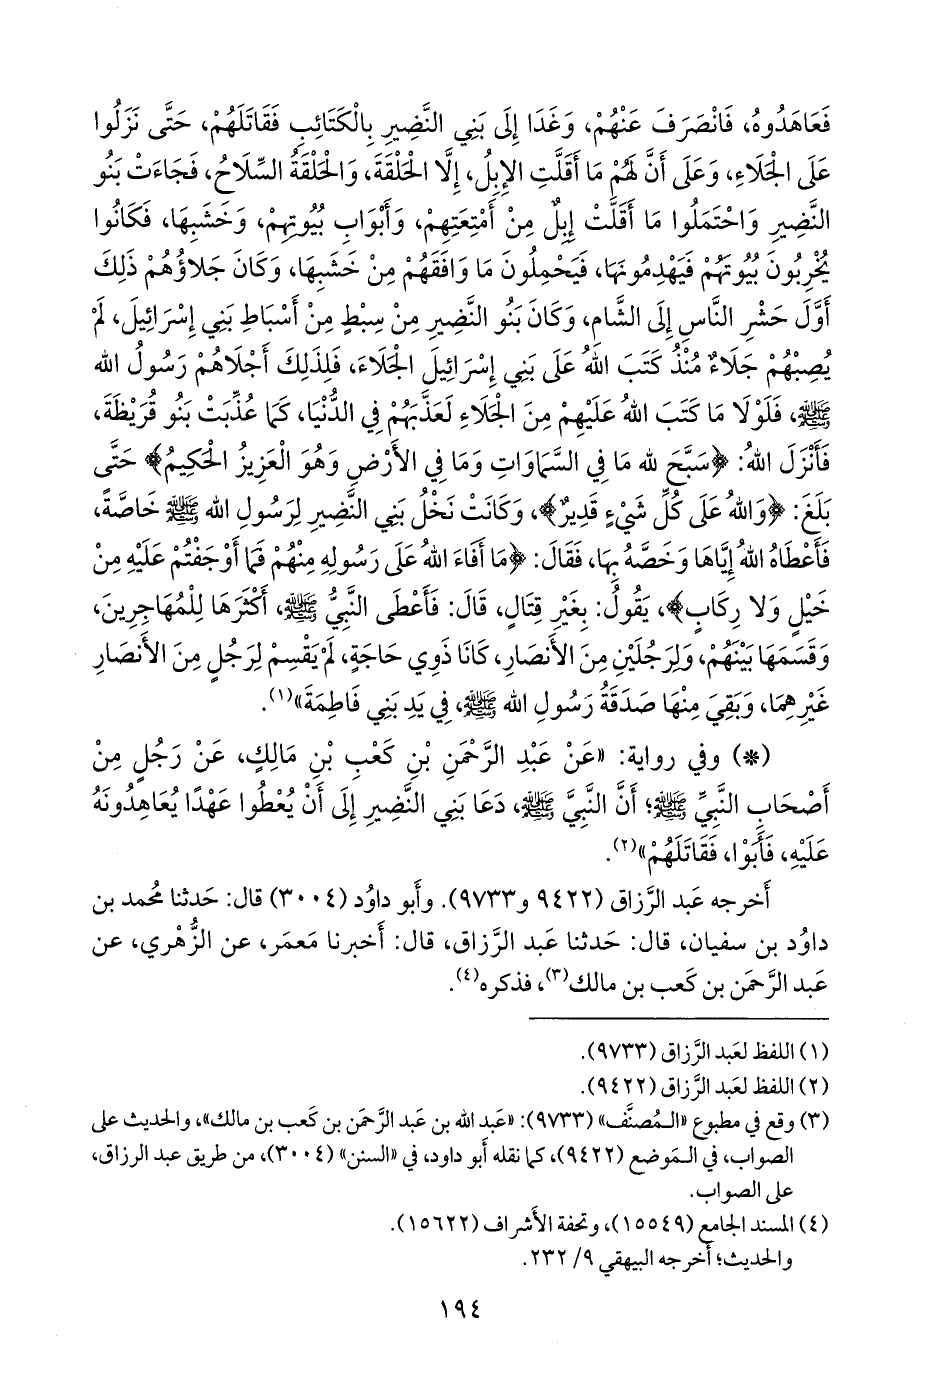 فَعَاهَدُوهُ، فَانْصَرَفَ عَنْهُمْ، وَغَدَا إِلَى بَنِي النَّضِيرِ بِالْكَتَائِبِ فَقَاتَلَهُمْ، حَتَّى نَزَلُوا
عَلَى الْجَلَاءِ، وَعَلَى أَنَّ لَهُمْ مَا أَقَلَّتِ الإِبِلُ، إِلَّا الْحَلْقَةَ، وَالْحَلْقَةُ السِّلَاحُ، فَجَاءَتْ بَنُو
النَّضِيرِ وَاحْتَمَلُوا مَا أَقَلَّتْ إِبِلٌ مِنْ أَمْتِعَتِهِمْ، وَأَبْوَابِ بُيُوتِهِمْ، وَخَشَبِهَا، فَكَانُوا
يُخْرِبُونَ بُيُوتَهُمْ فَيَهْدِمُونَهَا، فَيَحْمِلُونَ مَا وَافَقَهُمْ مِنْ خَشَبِهَا، وَكَانَ جَلاَؤُهُمْ ذَلِكَ
أَوَّلَ حَشْرِ النَّاسِ إِلَى الشَّامِ، وَكَانَ بَنُو النَّضِيرِ مِنْ سِبْطٍ مِنْ أَسْبَاطِ بَنِي إِسْرَائِيلَ، لَمْ
يُصِبْهُمْ جَلَاءٌ مُنْذُ كَتَبَ اللهُ عَلَى بَنِي إِسْرَائِيلَ الْجَلَاءَ، فَلِذَلِكَ أَجْلَاهُمْ رَسُولُ الله
ﷺ، فَلَوْلَا مَا كَتَبَ اللهُ عَلَيْهِمْ مِنَ الْجَلَاءِ لَعَذَّبَهُمْ فِي الدُّنْيَا، كَمَا عُذِّبَتْ بَنُو قُرَيْظَةَ،
فَأَنْزَلَ اللهُ: ﴿سَبَّحَ لله مَا فِي السَّمَاوَاتِ وَمَا فِي الأَرْضِ وَهُوَ الْعَزِيزُ الْحَكِيمُ﴾ حَتَّى
بَلَغَ: ﴿وَاللهُ عَلَى كُلِّ شَيْءٍ قَدِيرٌ﴾، وَكَانَتْ نَخْلُ بَنِي النَّضِيرِ لِرَسُولِ الله ﷺ خَاصَّةً،
فَأَعْطَاهُ اللهُ إِيَّاهَا وَخَصَّهُ بِهَا، فَقَالَ: ﴿مَا أَفَاءَ اللهُ عَلَى رَسُولِهِ مِنْهُمْ فَمَا أَوْجَفْتُمْ عَلَيْهِ مِنْ
خَيْلٍ وَلا رِكَابٍ﴾، يَقُولُ: بِغَيْرِ قِتَالٍ، قَالَ: فَأَعْطَى النَّبِيُّ ﷺ، أَكْثَرَهَا لِلْمُهَاجِرِينَ،
وَقَسَمَهَا بَيْنَهُمْ، وَلِرَجُلَيْنِ مِنَ الأَنْصَارِ، كَانَا ذَوِي حَاجَةٍ، لَمْ يَقْسِمْ لِرَجُلٍ مِنَ الأَنْصَارِ
غَيْرِهِمَا، وَبَقِيَ مِنْهَا صَدَقَةُ رَسُولِ الله ﷺ، فِي يَدِ بَنِي فَاطِمَةَ»(١).
(*) وفي رواية: «عَنْ عَبْدِ الرَّحْمَنِ بْنِ كَعْبِ بْنِ مَالِكٍ، عَنْ رَجُلٍ مِنْ
أَصْحَابِ النَّبِيِّ ﷺ؛ أَنَّ النَّبِيَّ ﷺ، دَعَا بَنِي النَّضِيرِ إِلَى أَنْ يُعْطُوا عَهْدًا يُعَاهِدُونَهُ
عَلَيْهِ، فَأَبَوْا، فَقَاتَلَهُمْ»(٢).
أَخرجه عَبد الرَّزاق (٩٤٢٢ و٩٧٣٣). وأَبو داوُد (٣٠٠٤) قال: حَدثنا مُحمد بن
داوُد بن سفيان، قال: حَدثنا عَبد الرَّزاق، قال: أَخبرنا مَعمَر، عن الزُّهْري، عن
عَبد الرَّحمَن بن كَعب بن مالك(٣)، فذكره(٤).
(١) اللفظ لعَبد الرَّزاق (٩٧٣٣).
(٢) اللفظ لعَبد الرَّزاق (٩٤٢٢).
(٣) وقع في مطبوع «المُصنَّف» (٩٧٣٣): «عَبد الله بن عَبد الرَّحمَن بن كَعب بن مالك»، والحديث على
الصواب، في المَوضع (٩٤٢٢)، كما نقله أَبو داود، في «السنن» (٣٠٠٤)، من طريق عبد الرزاق،
على الصواب.
(٤) المسند الجامع (١٥٥٤٩)، وتحفة الأَشراف (١٥٦٢٢).
والحديث؛ أَخرجه البيهقي ٩/ ٢٣٢.
١٩٤